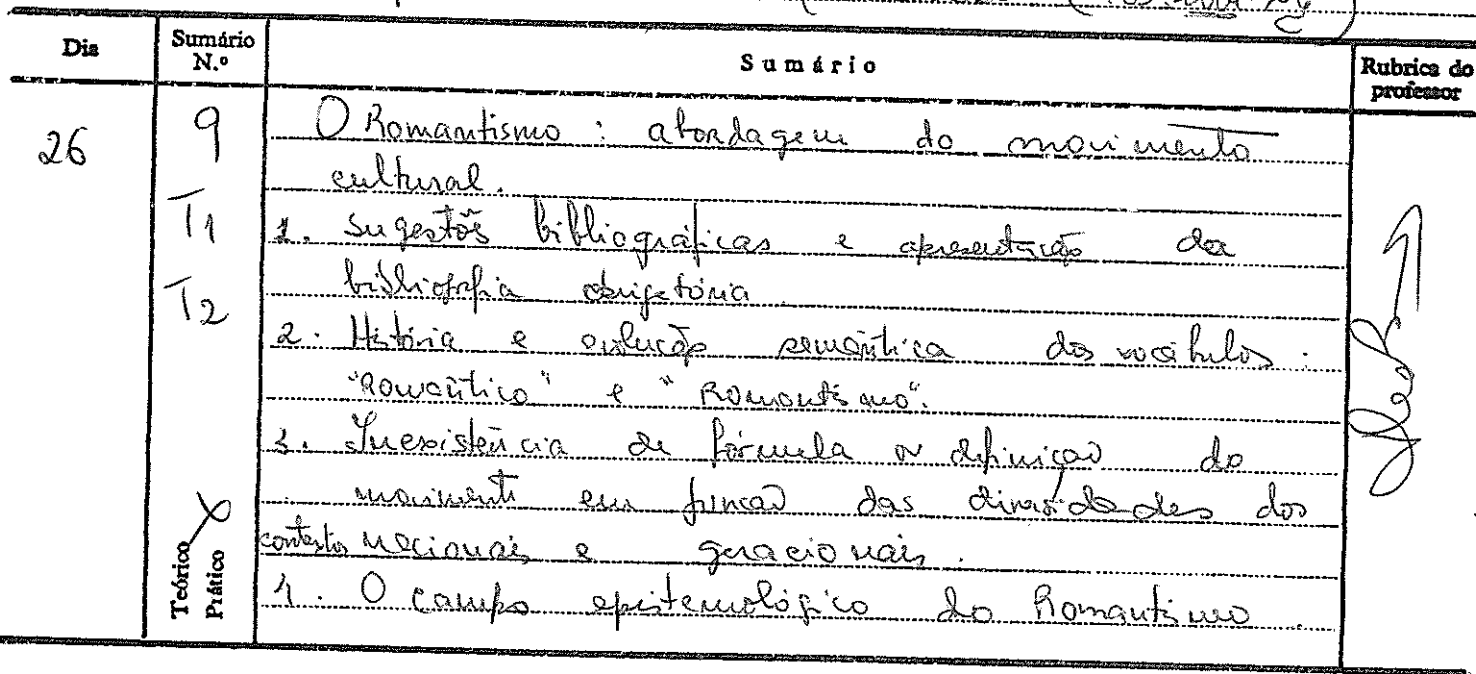 Dia Sumário N.º Sumário Rubrica do professor
26 9 O Romantismo : abordagem do movimento
cultural.
T1 1. Sugestões bibliográficas e apresentação da
T2 bibliografia obrigatória
2. História e evolução semântica dos vocábulos :
"Romântico" e "Romantismo".
3. Inexistência de fórmula ou definição do
movimento em função das diversidades dos
contextos nacionais e geracionais.
Teórico X
Prático
1. O campo epistemológico do Romantismo.